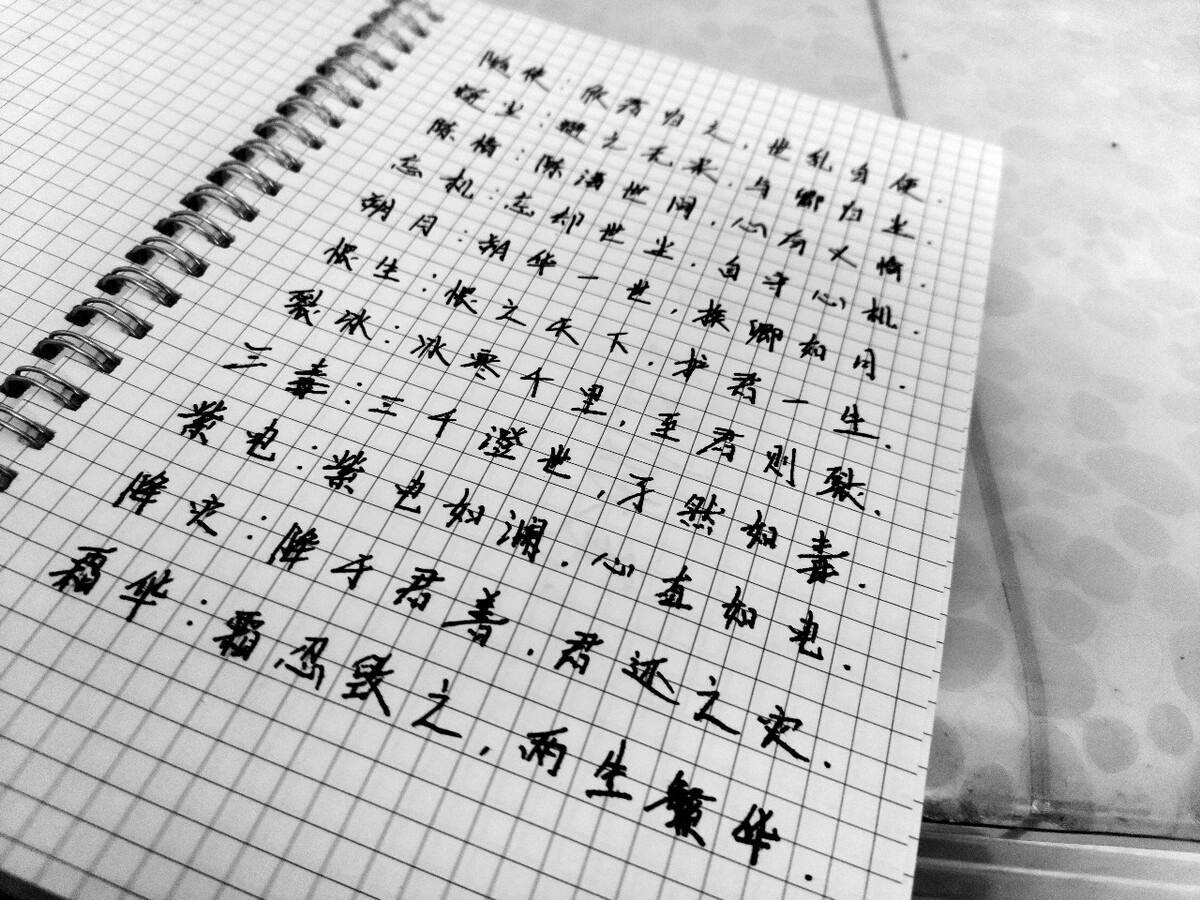 随便：依君归之，世乱自便．
避尘：避之无果．与卿归尘．
陈情：陈酒世间．心有义情．
忘机：忘却世尘．自守心机．
朔月：朔华一世，挨卿如月．
恨生：恨之天下．护君一生．
裂冰：冰寒千里，至君则裂．
三毒：三千澄世，孑然如毒．
紫电：紫电如澜．心直如电．
降灾：降于君善．君还之灾．
霜华：霜忍毁之，两生繁华．